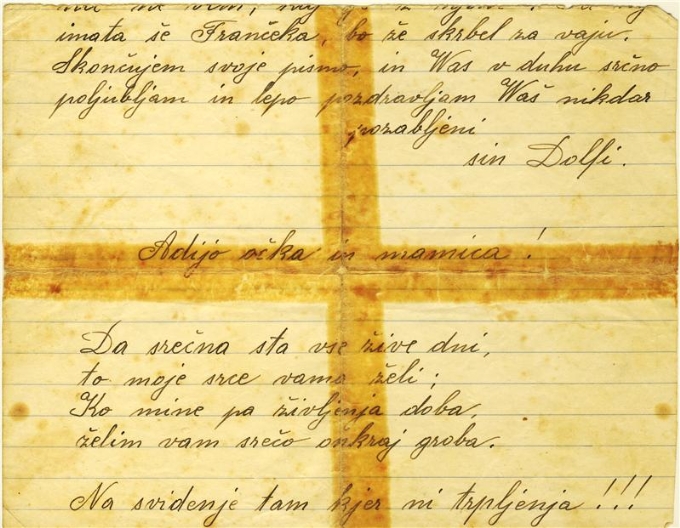 imata še Frančeka, bo že skrbel za vaju.
Skončujem svoje pismo, in Was v duhu srčno
poljubljam in lepo pozdravljam Waš nikdar
pozabljeni
sin Dolfi.
Adijo očka in mamica!
Da srečna sta vse žive dni,
to moje srce vama želi;
Ko mine pa življenja doba,
želim vam srečo onkraj groba.
Na svidenje tam kjer ni trpljenja!!!